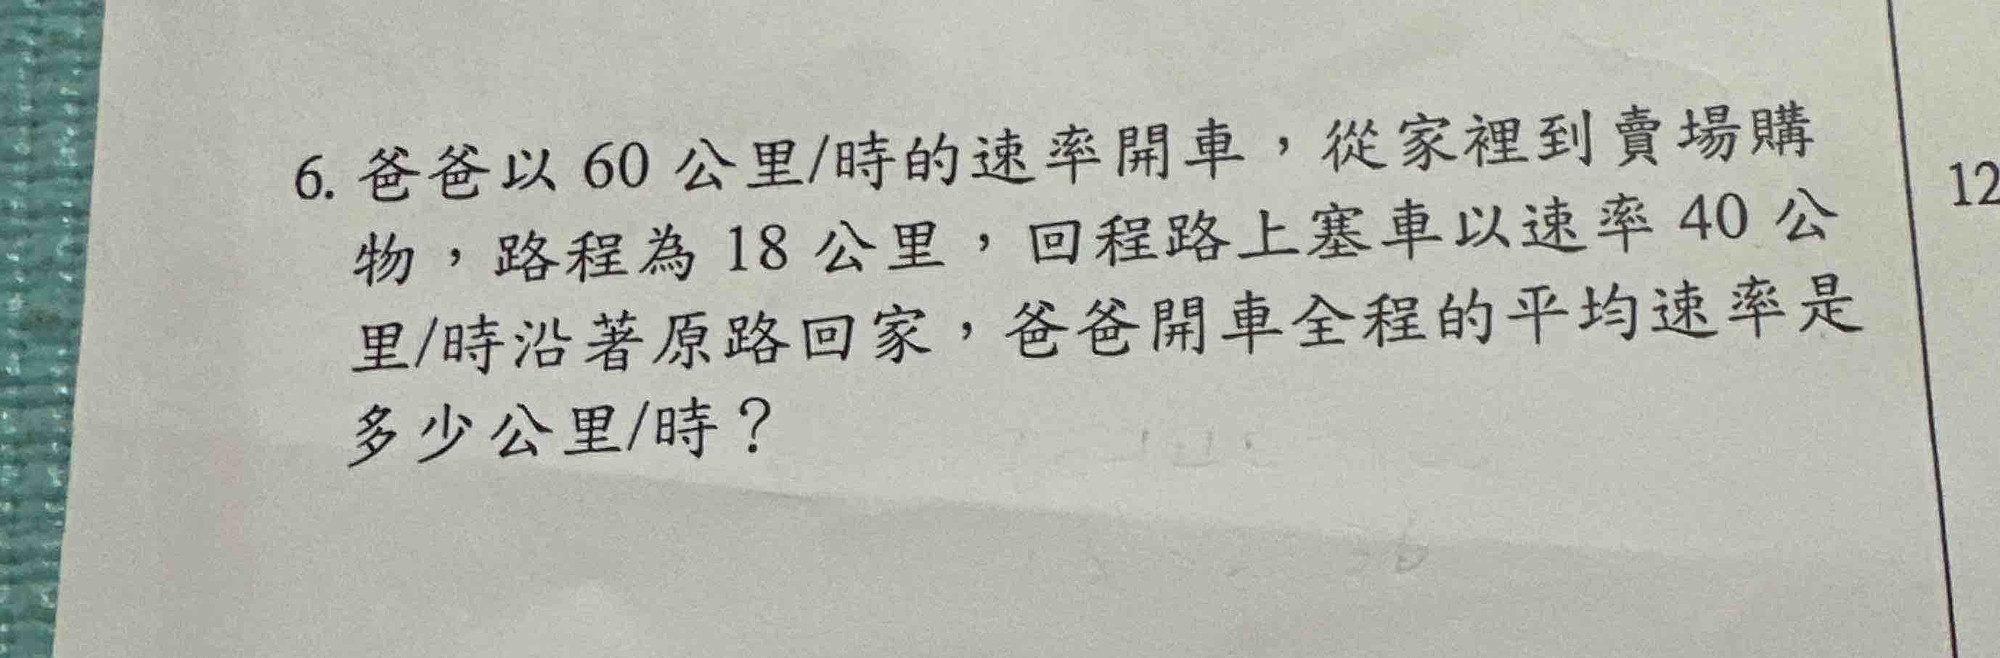 6. 爸爸以 60 公里/時的速率開車，從家裡到賣場購
物，路程為 18 公里，回程路上塞車以速率 40 公
里/時沿著原路回家，爸爸開車全程的平均速率是
多少公里/時？
12